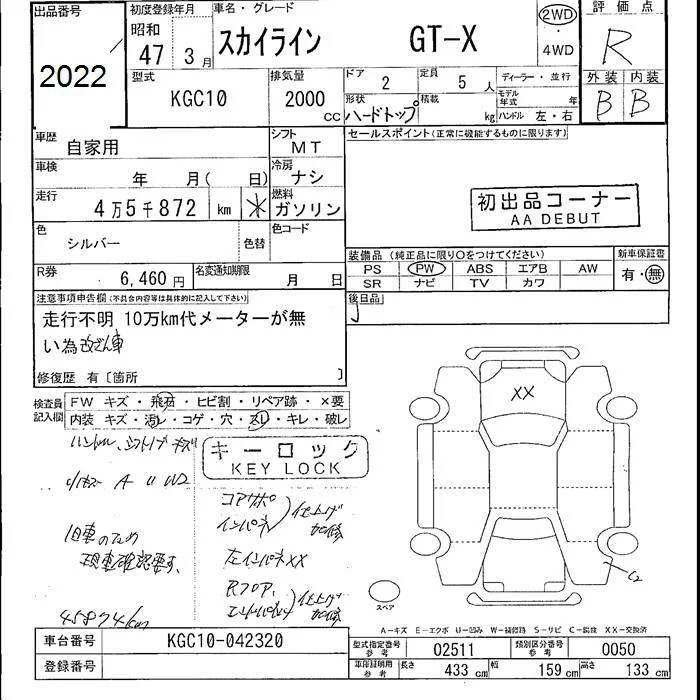 出品番号
2022
初度登録年月
昭和
47年 3月
車名・グレード
スカイライン GT-X
2WD
・
4WD
評価点
R
型式
KGC10
排気量
2000
CC
ドア
2
定員
5 人
形状
ハードトップ
積載
kg
ディーラー・並行
モデル年式 年
ハンドル 左・右
外装 内装
B B
車歴
自家用
シフト
MT
セールスポイント(正常に機能するものに限ります)
車検
年 月( 日)
冷房
ナシ
走行
4万5千872 km
燃料
ガソリン
初出品コーナー
AA DEBUT
色
シルバー
色替
色コード
装備品 (純正品に限り○をつけてください)
新車保証書
PS PW ABS エアB AW
SR ナビ TV カワ
有・無
R券
6,460 円
名変通知期限
月 日
後日品
注意事項申告欄(不具合内容等は具体的に記入して下さい)
走行不明 10万km代メーターが無
い為改ざん車
修復歴 有〔箇所 〕
検査員記入欄
FW キズ・飛石・ヒビ割・リペア跡・×要
内装 キズ・汚レ・コゲ・穴・スレ・キレ・破レ
ハンドル、シフトノブキズ
キーロック
KEY LOCK
A U W2
コアサポ
インパネ
仕上げ
加修
旧車のため
現車確認要す、
左インパネXX
Rフロア、
エンドパネル
仕上げ
加修
45874km
XX
C2
スペア
A-キズ E-エクボ U-凹み W-補修跡 S-サビ C-腐食 XX-交換済
車台番号
KGC10-042320
型式指定番号
参考
02511
類別区分番号
参考
0050
登録番号
車庫証明用
参考
長さ
433 cm
幅
159 cm
高さ
133 cm